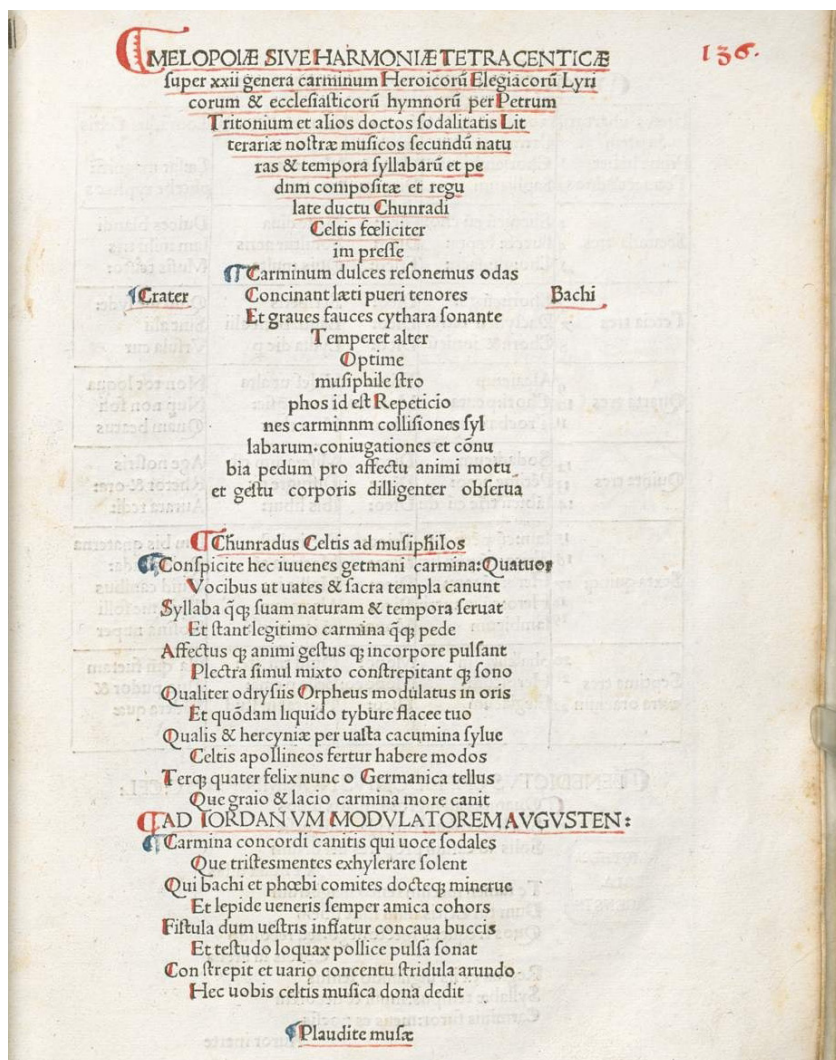 136.
MELOPOIÆ SIVE HARMONIÆ TETRACENTICÆ
ſuper xxii genera carminum Heroicorū Elegiacorū Lyri
corum & eccleſiaſticorū hymnorū per Petrum
Tritonium et alios doctos ſodalitatis Lit
terariæ noſtræ muſicos ſecundū natu
ras & tempora ſyllabarū et pe
dnm compoſitæ et regu
late ductu Chunradi
Celtis fœliciter
im preſſe
¶ Carminum dulces reſonemus odas
¶Crater Concinant læti pueri tenores Bachi
Et graues fauces cythara ſonante
Temperet alter
Optime
muſiphile ſtro
phos id eſt Repeticio
nes carminnm colliſiones ſyl
labarum.coniugationes et cōnu
bia pedum pro affectu animi motu
et geſtu corporis dilligenter obſerua
Chunradus Celtis ad muſiphilos
¶Conſpicite hec iuuenes getmani carmina:Quatuor
Vocibus ut uates & ſacra templa canunt
Syllaba q̄q; ſuam naturam & tempora ſeruat
Et ſtant legitimo carmina q̄q; pede
Affectus q; animi geſtus q; incorpore pulſant
Plectra ſimul mixto conſtrepitant q; ſono
Qualiter odryſiis Orpheus modulatus in oris
Et quōdam liquido tybure flacce tuo
Qualis & hercyniæ per uaſta cacumina ſylue
Celtis apollineos fertur habere modos
Terq; quater felix nunc o Germanica tellus
Que graio & lacio carmina more canit
AD IORDAN VM MODVLATOREM AVGVSTEN:
¶Carmina concordi canitis qui uoce ſodales
Que triſtesmentes exhylerare ſolent
Qui bachi et phœbi comites docteq; minerue
Et lepide ueneris ſemper amica cohors
Fiſtula dum ueſtris inflatur concaua buccis
Et teſtudo loquax pollice pulſa ſonat
Con ſtrepit et uario concentu ſtridula arundo
Hec uobis celtis muſica dona dedit
¶Plaudite muſæ